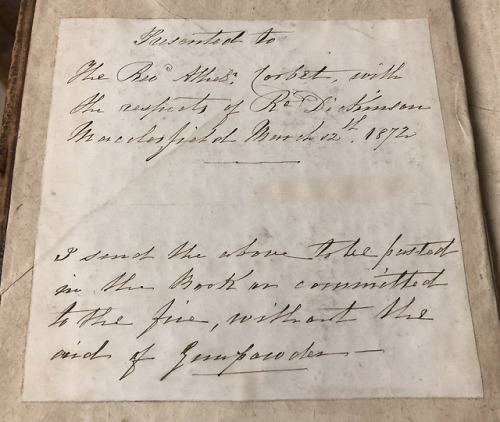 Presented to
The Revd Athelr. Corbet, with
the respects of Rd Dickinson
Macclesfield March 12th. 1872
I send the above to be pasted
in the Book or committed
to the fire, without the
aid of Gunpowder